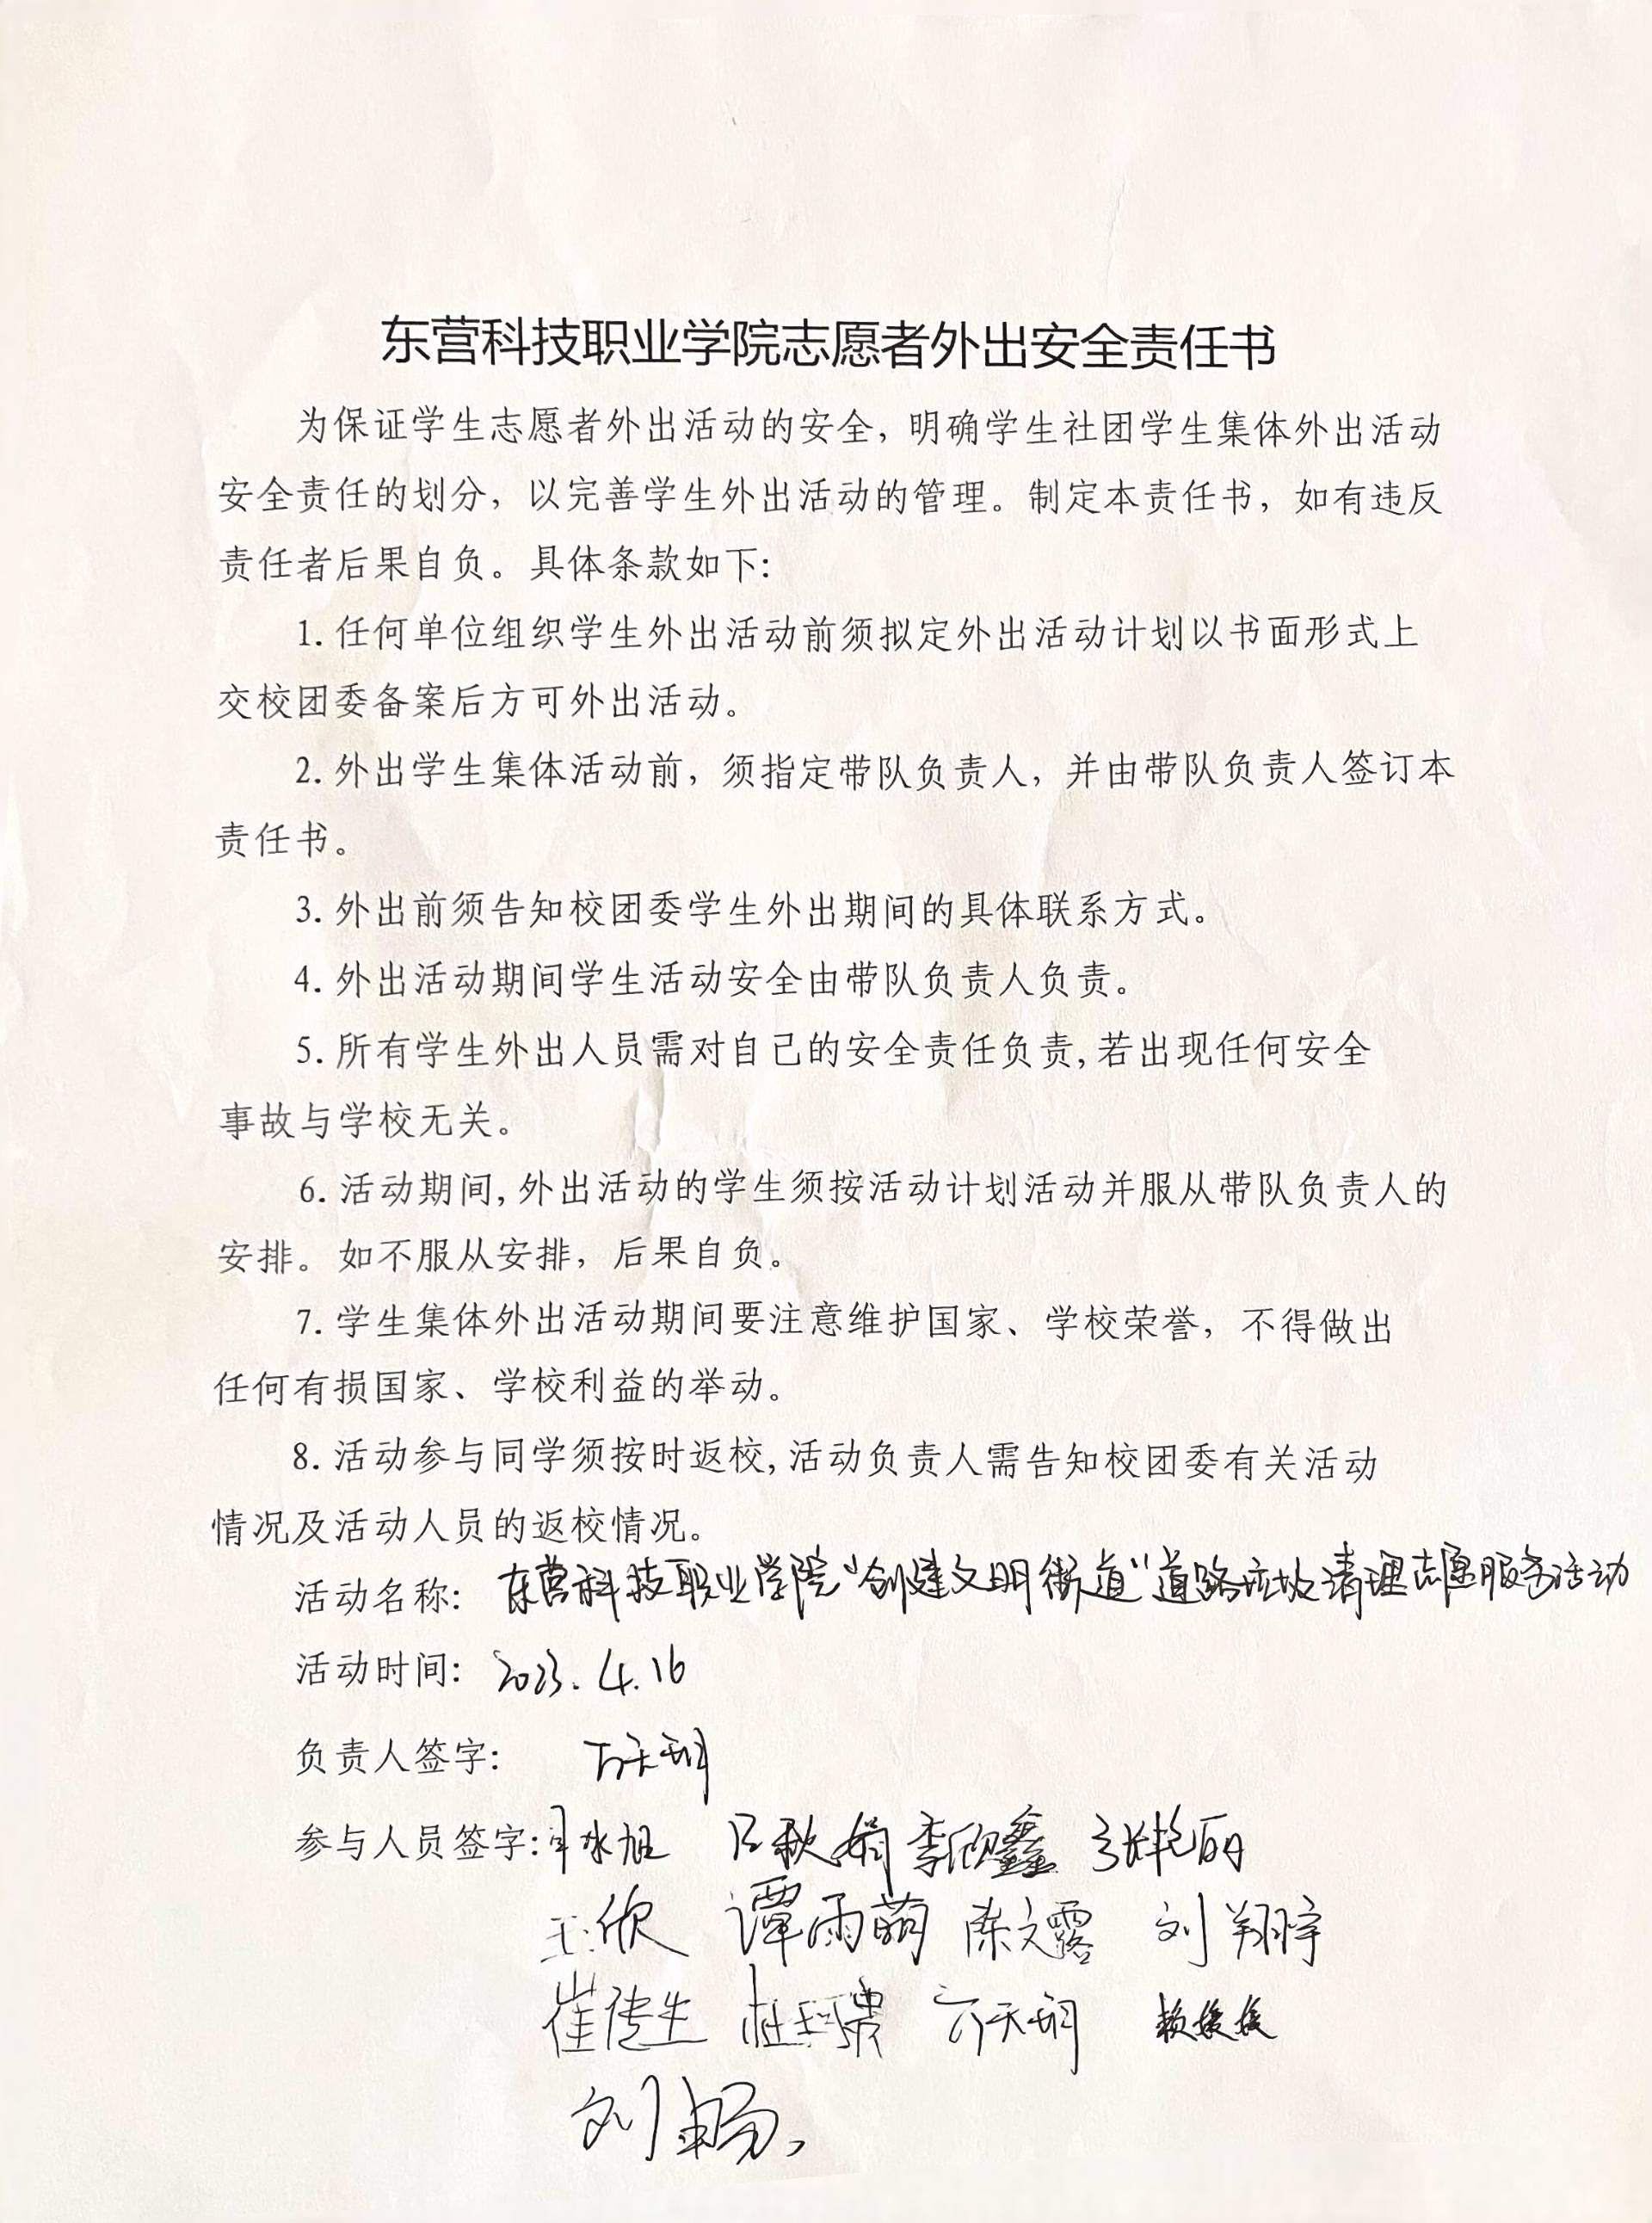 东营科技职业学院志愿者外出安全责任书
为保证学生志愿者外出活动的安全，明确学生社团学生集体外出活动
安全责任的划分，以完善学生外出活动的管理。制定本责任书，如有违反
责任者后果自负。具体条款如下：
1.任何单位组织学生外出活动前须拟定外出活动计划以书面形式上
交校团委备案后方可外出活动。
2.外出学生集体活动前，须指定带队负责人，并由带队负责人签订本
责任书。
3.外出前须告知校团委学生外出期间的具体联系方式。
4.外出活动期间学生活动安全由带队负责人负责。
5.所有学生外出人员需对自己的安全责任负责,若出现任何安全
事故与学校无关。
6.活动期间,外出活动的学生须按活动计划活动并服从带队负责人的
安排。如不服从安排，后果自负。
7.学生集体外出活动期间要注意维护国家、学校荣誉，不得做出
任何有损国家、学校利益的举动。
8.活动参与同学须按时返校,活动负责人需告知校团委有关活动
情况及活动人员的返校情况。
活动名称：东营科技职业学院“创建文明街道”道路垃圾清理志愿服务活动
活动时间：2023.4.16
负责人签字：
参与人员签字： 吕秋娟 李欣鑫 张艳丽
王欣 谭雨萌 陈文露 刘翔宇
崔传生 赖媛媛
刘畅